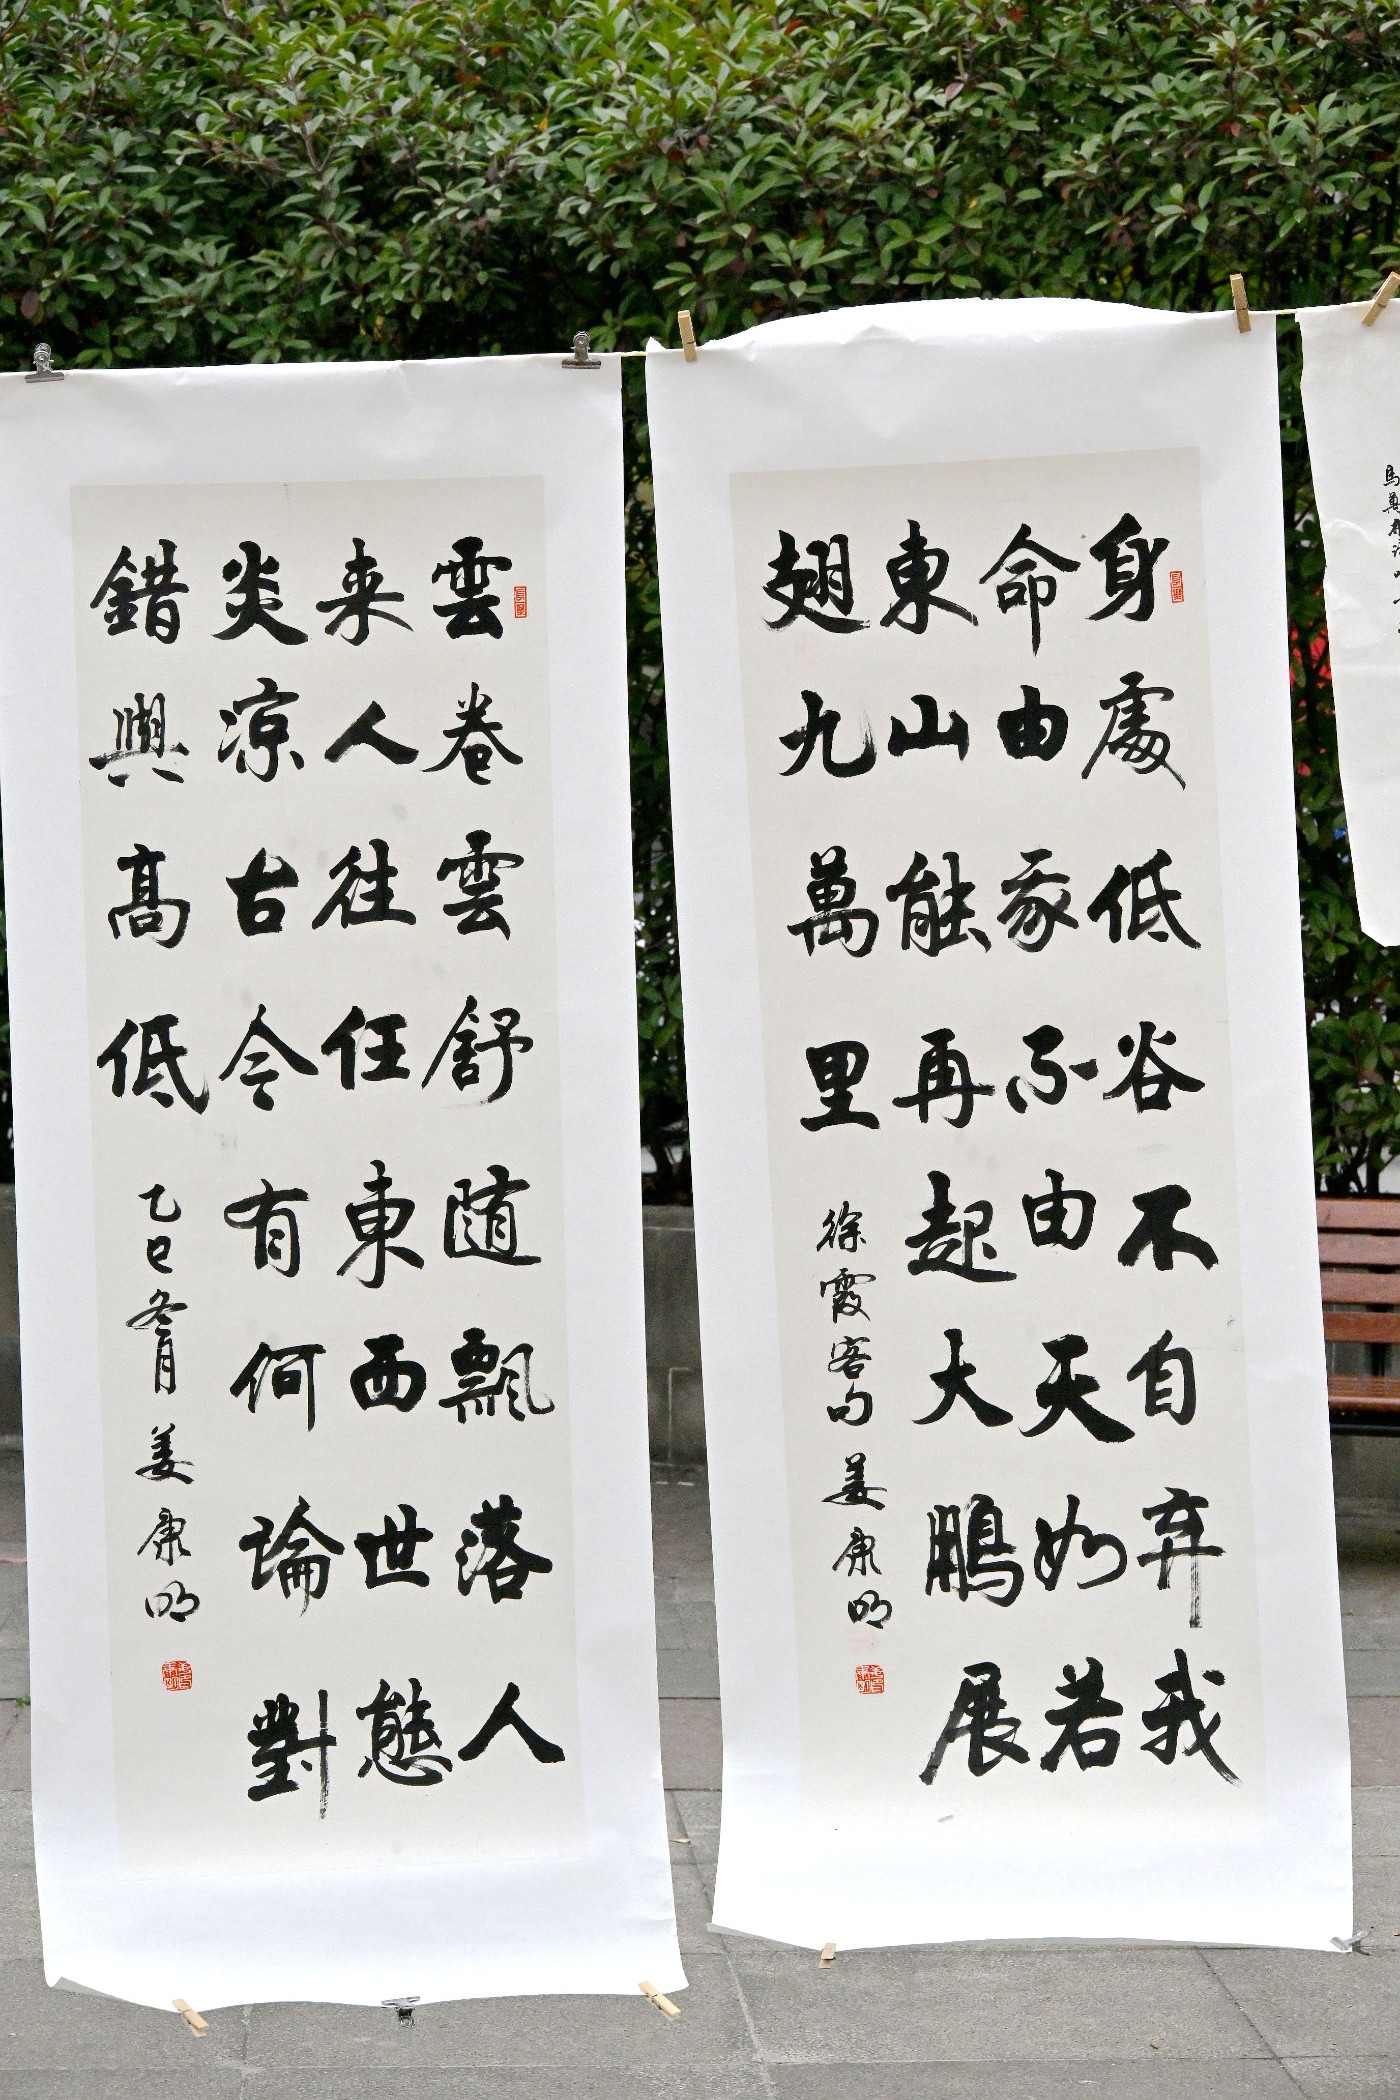 身處低谷不自弃我
命由我不由天如若
東山能再起大鵬展
翅九萬里
徐霞客句姜康明
雲卷雲舒随飄落人
来人往任東西世態
炎凉古今有何論對
錯與高低
乙巳冬月姜康明